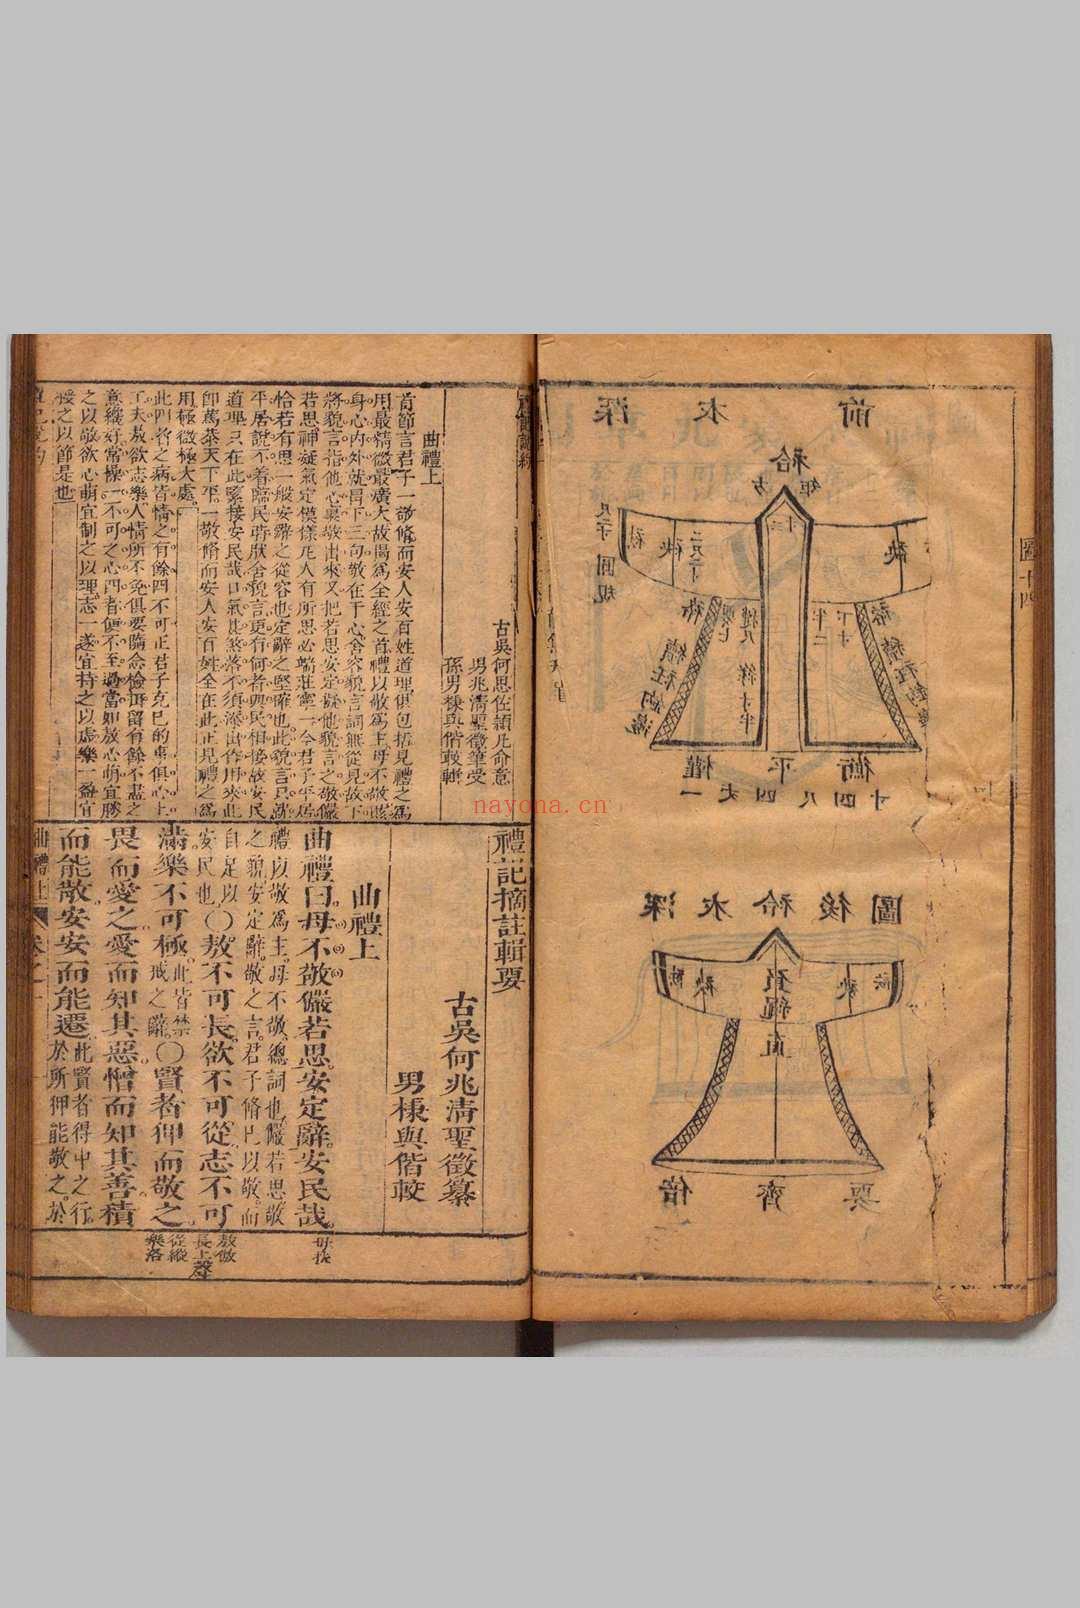 圖十四
前衣深
袷
矩方
寸二
袂
袂
袪
二尺二寸
尺二寸圓規
要七
縫尺
緣寸半
續衽鉤邊
續衽鉤邊
衡平權
寸四尺四丈一
圖後袷衣深
袂
袂
負繩
直
要
齊
倍
古吳何思佐穎凡命意
男兆清聖徵筆受
孫男棣與偕較輯
曲禮上
首節言君子一敬脩而安人安百姓道理俱包括見禮之爲
用最精微最廣大故揭爲全經之首禮以敬爲主毋不敬賅
身心內外就冒下三句敬在于心舍容貌言詞無從見故下
將貌言指他心裏敬出來又把若思安定疑他貌言之敬儼
若思神凝氣定模樣凡人有所思必端莊寧一今君子平居
恰若有思一般安辭之從容也定辭之堅確也此貌言只就
平居說不着臨民時狀舍貌言更有何者與民相接故安民
道理只在此緊接安民哉口氣其煞落不須添出作用來此
卽篤恭天下平一敬脩而安人安百姓全在此正見禮之爲
用極微極大處
此四者之病皆情之有餘四不可正君子克巳的事俱心上
工夫敖欲志樂人情所不免俱要隨念檢點留有餘不盡之
意纔好常操一不可之心四者便不至過當如敖心萌宜勝
之以敬欲心萌宜制之以理志一遂宜持之以虛樂一盈宜
接之以節是也
禮記摘註輯要
古吳何兆清聖徵纂
男棣與偕較
曲禮上
曲禮曰毋不敬儼若思安定辭安民哉
禮以敬爲主毋不敬總詞也儼若思敬
之貌安定辭敬之言君子脩巳以敬而
自足以
安民也〇敖不可長欲不可從志不可
滿樂不可極此皆禁
戒之辭〇賢者狎而敬之
畏而愛之愛而知其惡憎而知其善積
而能散安安而能遷此賢者得中之行
於所狎能敬之於
敖傲
長上聲
從縱
樂洛
曲禮上 卷之一